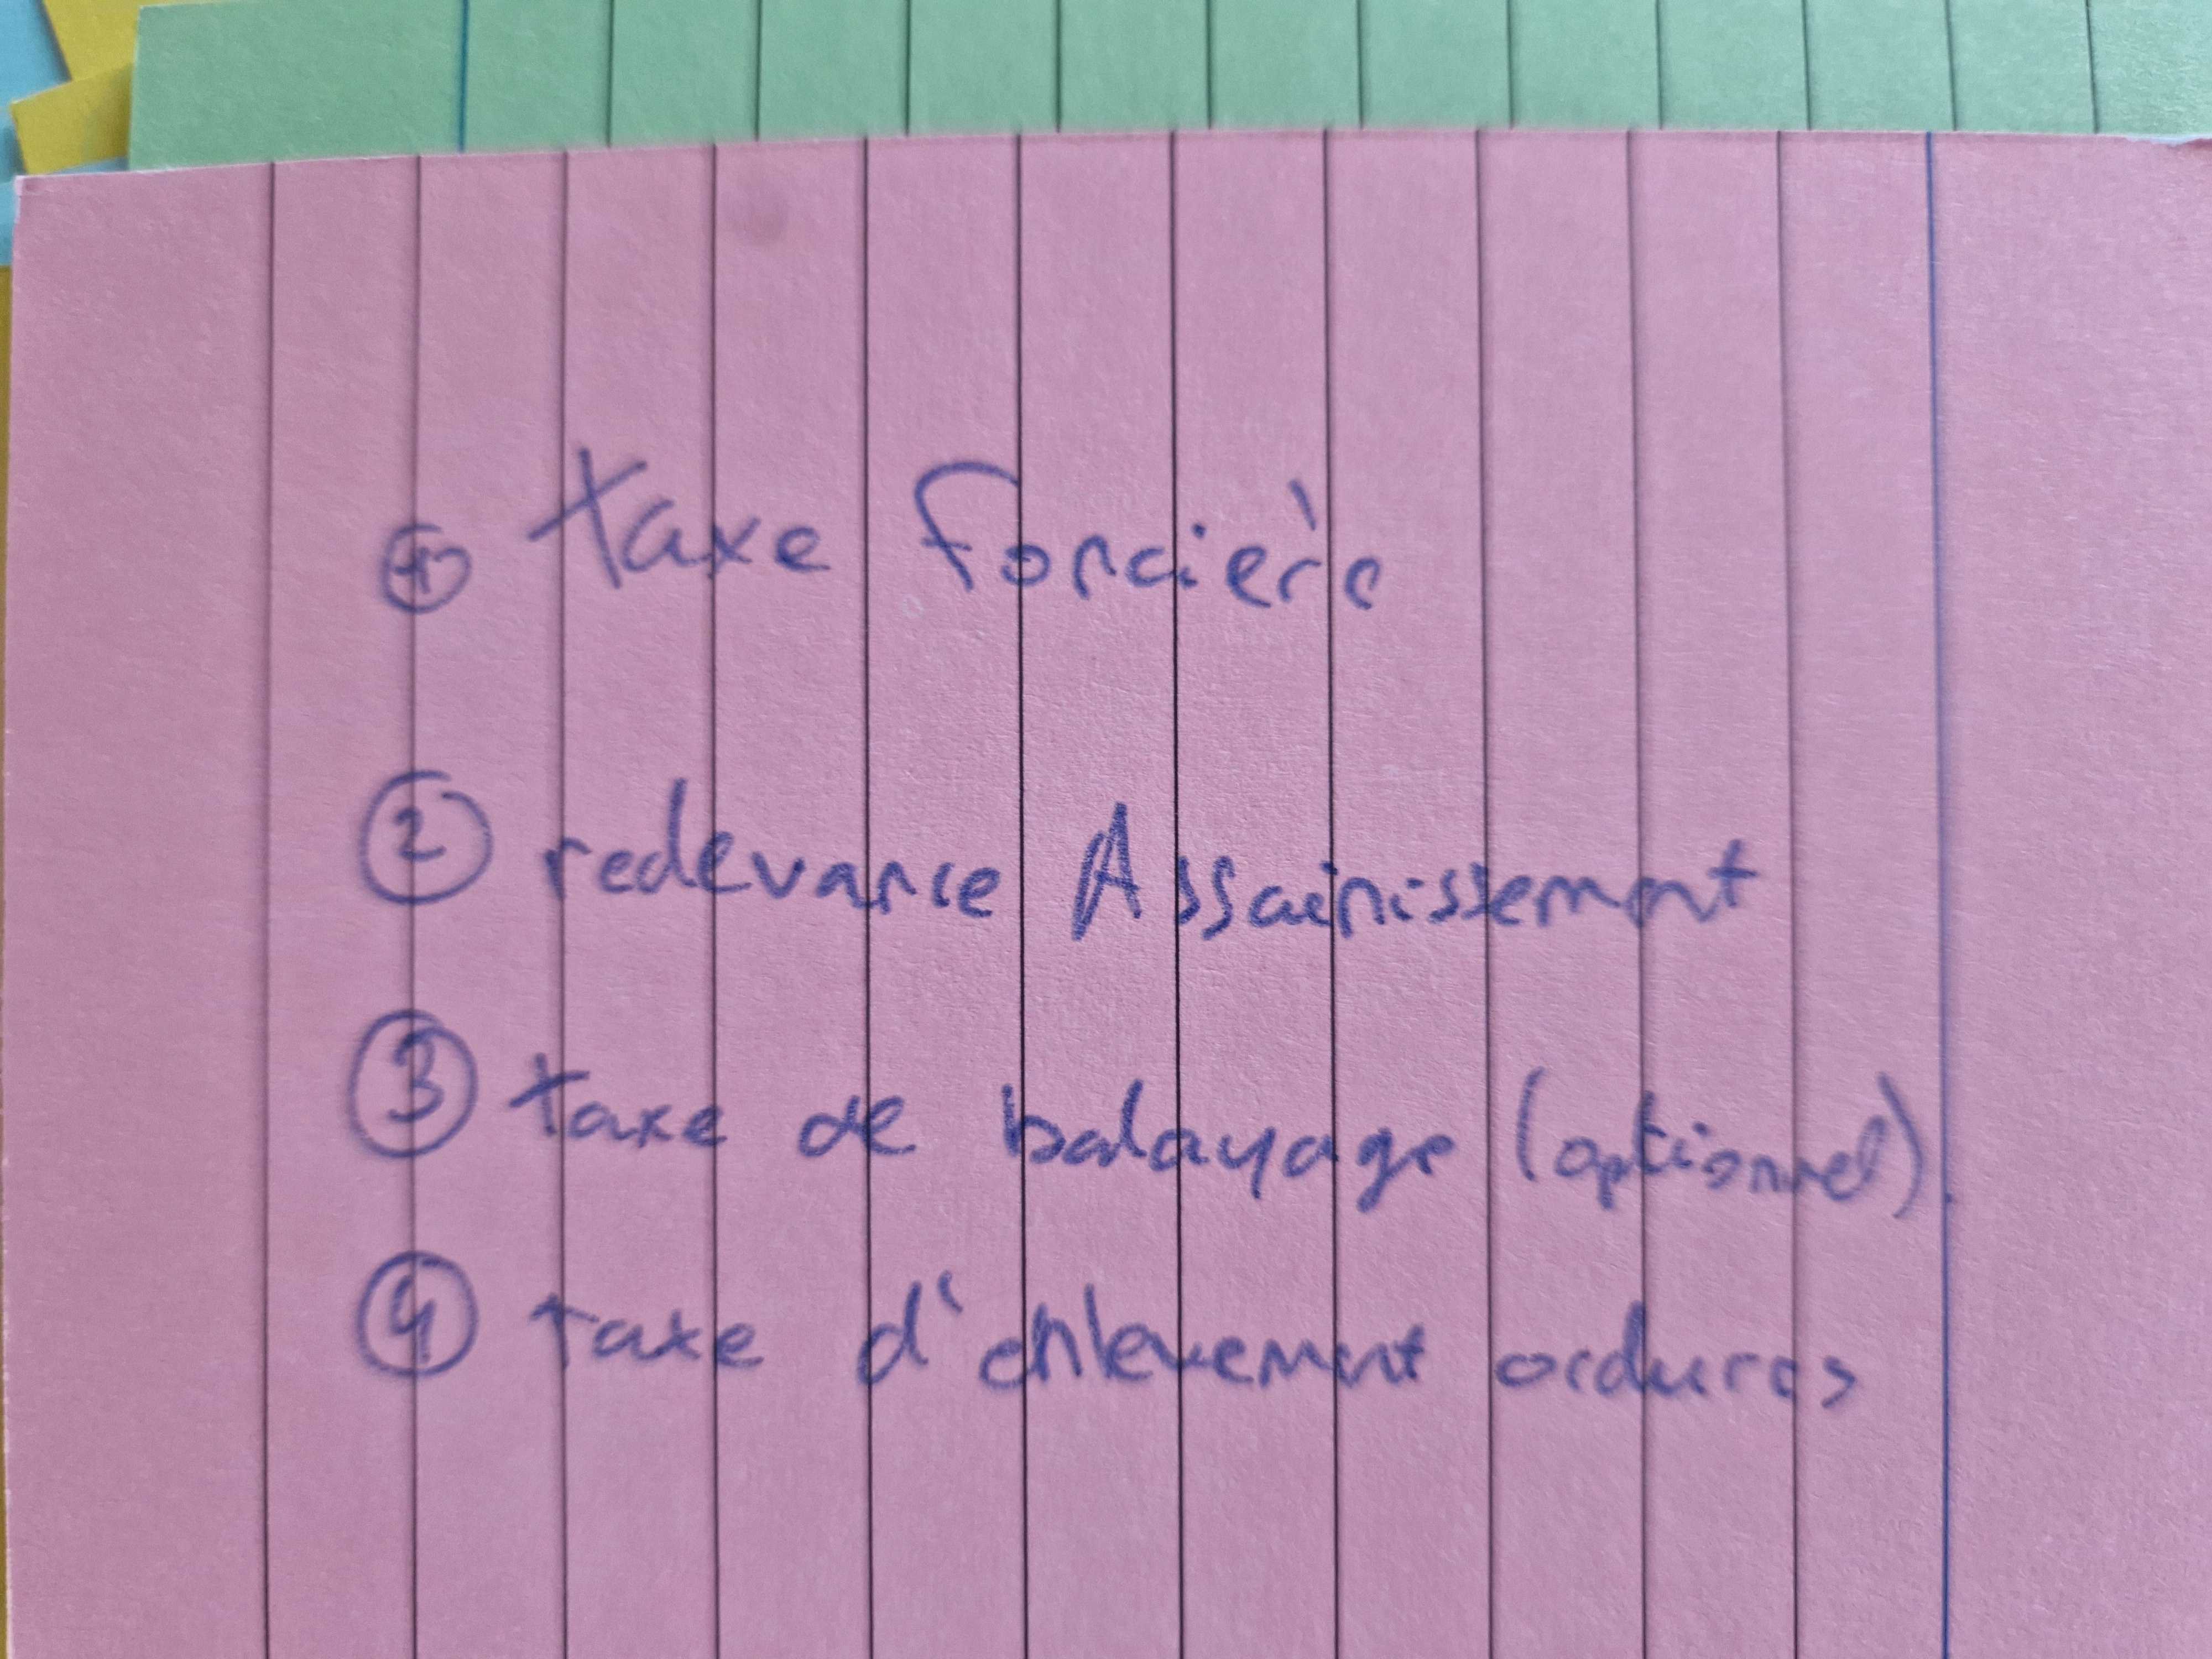 ① taxe foncière
② redevance Assainissement
③ taxe de balayage (optionnel).
④ taxe d'enlevement ordures